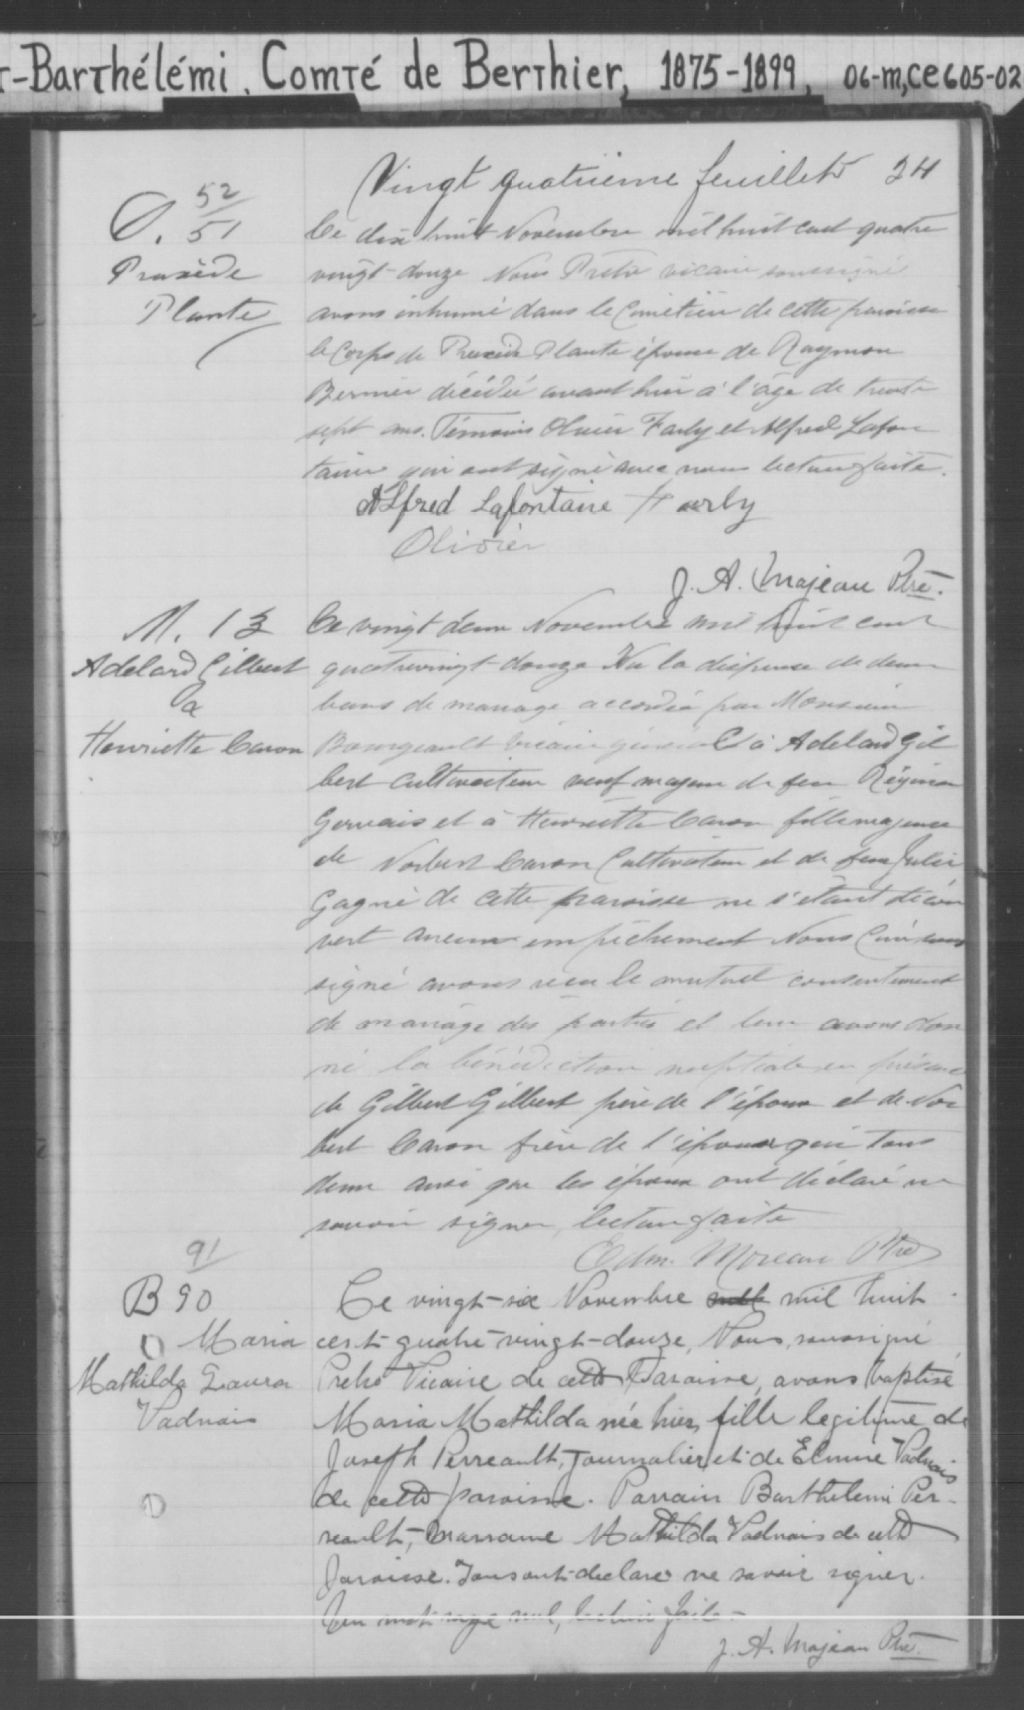 T-Barthélémi, Comté de Berthier, 1875-1899, 06-M,CE605-02
Vingt quatrième feuillet 24
52
S. 51
Praxède
Plante
Ce dix huit Novembre mil huit cent quatre
vingt-douze Nous Prêtre vicaire soussigné
avons inhumé dans le Cimetière de cette paroisse
le Corps de Praxède Plante épouse de Raymon
Bernier décédée avant hier à l'âge de trente
sept ans. Témoins Olivier Farly et Alfred Lafon
taine qui ont signé avec nous lecture faite.
Alfred Lafontaine Farly
Olivier
J. A. Majeau Ptre.
M. 13
Adelard Gilbert
&
Henriette Caron
Ce vingt deux Novembre mil huit cent
quatrevingt-douze Vu la dispense de deux
bans de mariage accordée par Monsieur
Bourgeault Vicaire général à Adelard Gil
bert Cultivateur veuf majeur de feue Régina
Gervais et à Henriette Caron fille majeure
de Norbert Caron Cultivateur et de feue Julie
Gagné de cette paroisse ne s'étant décou
vert aucun empêchement Nous Curé sous
signé avons reçu le mutuel consentement
de mariage des parties et leur avons don
né la bénédiction nuptiale en présence
de Gilbert Gilbert père de l'époux et de Nor
bert Caron frère de l'épouse qui tous
deux ainsi que les époux ont déclaré ne
savoir signer lecture faite
Edm. Moreau Ptre
91
B 90
Maria
Mathilda Laura
Vadnais
Ce vingt-six Novembre mil huit
cent-quatre-vingt-douze, Nous, soussigné
Prêtre Vicaire de cette Paroisse, avons baptisé
Maria Mathilda née hier, fille légitime de
Joseph Perreault, Journalier et de Elmire Vadnais
de cette paroisse. Parrain Barthelemi Per-
reault, Marraine Mathilda Vadnais de cette
Paroisse. Tous ont déclaré ne savoir signer.
Un mot rayé nul, lecture faite.-
J. A. Majeau Ptre.